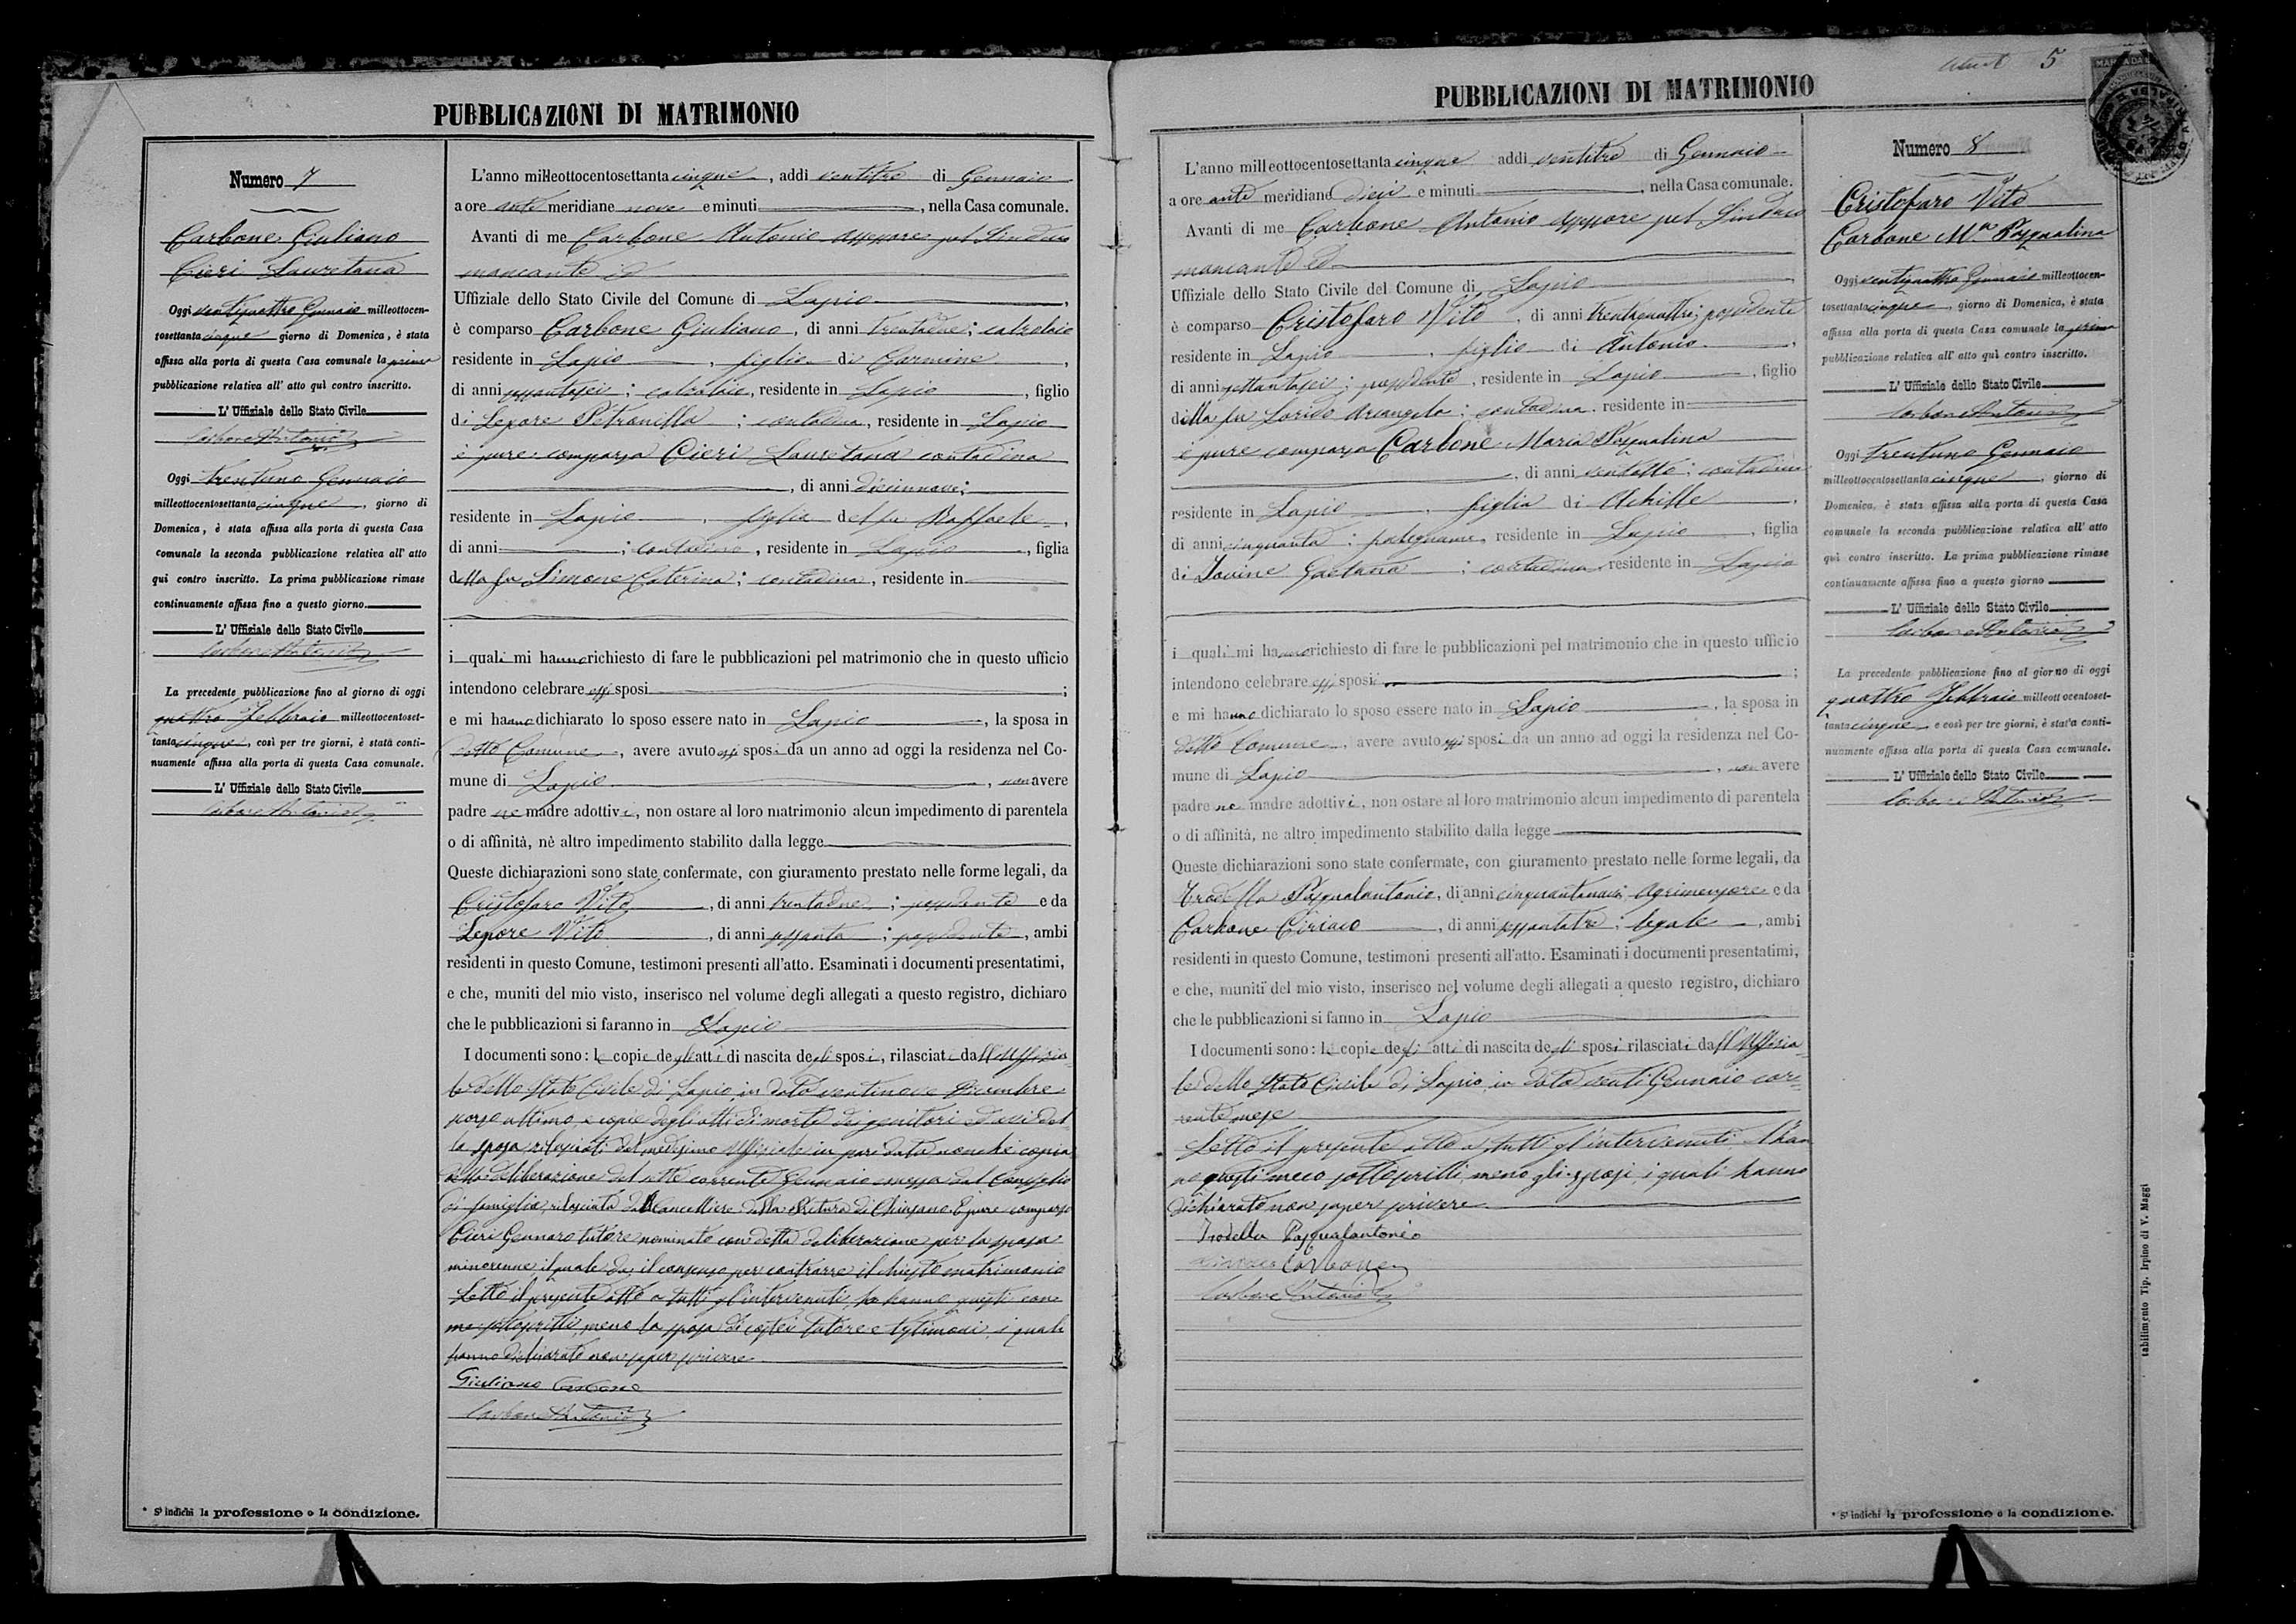 PUBBLICAZIONI DI MATRIMONIO
Numero 7
Carbone Giuliano
Cieri Lauretana
Oggi ventiquattro Gennaio milleottocen-
tosettanta cinque giorno di Domenica, è stata
affissa alla porta di questa Casa comunale la prima
pubblicazione relativa all' atto quì contro inscritto.
L' Uffiziale dello Stato Civile
Carbone Antonio
Oggi trentuno Gennaio
milleottocentosettanta cinque, giorno di
Domenica, è stata affissa alla porta di questa Casa
comunale la seconda pubblicazione relativa all' atto
qui contro inscritto. La prima pubblicazione rimase
continuamente affissa fino a questo giorno.
L' Uffiziale dello Stato Civile
Carbone Antonio
La precedente pubblicazione fino al giorno di oggi
quattro Febbraio milleottocentoset-
tanta cinque, così per tre giorni, è stata conti-
nuamente affissa alla porta di questa Casa comunale.
L' Uffiziale dello Stato Civile
Carbone Antonio
* Si indichi la professione o la condizione.
L'anno milleottocentosettanta cinque, addì ventitre di Gennaio
a ore anti meridiane nove e minuti , nella Casa comunale.
Avanti di me Carbone Antonio Assessore pel Sindaco
mancante ed
Uffiziale dello Stato Civile del Comune di Lapio,
è comparso Carbone Giuliano, di anni trentadue; calzolaio
residente in Lapio, figlio di Carmine,
di anni sessantasei; calzolaio, residente in Lapio, figlio
di Lepore Petronilla; contadina, residente in Lapio
è pure comparsa Cieri Lauretana contadina
, di anni diciannove;
residente in Lapio, figlia del fu Raffaele,
di anni ; contadino, residente in Lapio, figlia
della fu Simone Caterina; contadina, residente in
i quali mi hanno richiesto di fare le pubblicazioni pel matrimonio che in questo ufficio
intendono celebrare essi sposi ;
e mi hanno dichiarato lo sposo essere nato in Lapio, la sposa in
detto Comune, avere avuto essi sposi da un anno ad oggi la residenza nel Co-
mune di Lapio, non avere
padre ne madre adottivi, non ostare al loro matrimonio alcun impedimento di parentela
o di affinità, nè altro impedimento stabilito dalla legge
Queste dichiarazioni sono state confermate, con giuramento prestato nelle forme legali, da
Cristofaro Vito, di anni trentadue; possidente e da
Lepore Vito, di anni sessanta; possidente, ambi
residenti in questo Comune, testimoni presenti all'atto. Esaminati i documenti presentatimi,
e che, muniti del mio visto, inserisco nel volume degli allegati a questo registro, dichiaro
che le pubblicazioni si faranno in Lapio
I documenti sono: le copie degli atti di nascita degli sposi, rilasciate dall'Uffizia-
le dello Stato Civile di Lapio in data ventinove Dicembre
scorso ultimo, e copie degli atti di morte dei genitori ed avi del-
la sposa rilasciati dal medesimo Uffiziale in pari data nonchè copia
della deliberazione del sette corrente Gennaio emessa dal Consiglio
di famiglia, rilasciata dal Cancelliere della Pretura di Chiusano. È pure comparso
Cieri Gennaro tutore nominato con detta deliberazione per la sposa
minorenne il quale da il consenso per contrarre il chiesto matrimonio
Letto il presente atto a tutti gl'intervenuti, lo hanno questi con
me sottoscritto, meno la sposa di costei tutore e testimoni, i quali
hanno dichiarato non saper scrivere
Giuliano Carbone
Carbone Antonio
5
PUBBLICAZIONI DI MATRIMONIO
L'anno milleottocentosettanta cinque addì ventitre di Gennaio
a ore anti meridiane dieci e minuti , nella Casa comunale.
Avanti di me Carbone Antonio Assessore pel Sindaco
mancante ed
Uffiziale dello Stato Civile del Comune di Lapio,
è comparso Cristofaro Vito, di anni trentaquattro; possidente
residente in Lapio, figlio di Antonio,
di anni settantasei; possidente, residente in Lapio, figlio
della fu Arcangela; contadina, residente in
è pure comparsa Carbone Maria Pasqualina
, di anni ventotto; contadina
residente in Lapio, figlia di Achille,
di anni cinquanta; falegname, residente in Lapio, figlia
di Iovine Gaetana; contadina, residente in Lapio
i quali mi hanno richiesto di fare le pubblicazioni pel matrimonio che in questo ufficio
intendono celebrare essi sposi ;
e mi hanno dichiarato lo sposo essere nato in Lapio, la sposa in
detto Comune, avere avuto essi sposi da un anno ad oggi la residenza nel Co-
mune di Lapio, non avere
padre ne madre adottivi, non ostare al loro matrimonio alcun impedimento di parentela
o di affinità, ne altro impedimento stabilito dalla legge
Queste dichiarazioni sono state confermate, con giuramento prestato nelle forme legali, da
Trodella Pasqualantonio, di anni cinquantanove; Agrimensore e da
Carbone Ciriaco, di anni sessantatre; legale, ambi
residenti in questo Comune, testimoni presenti all'atto. Esaminati i documenti presentatimi,
e che, muniti del mio visto, inserisco nel volume degli allegati a questo registro, dichiaro
che le pubblicazioni si fanno in Lapio
I documenti sono: le copie degli atti di nascita degli sposi rilasciati dall'Uffizia-
le dello Stato Civile di Lapio in data venti Gennaio cor-
rente mese
Letto il presente atto a tutti gl'intervenuti l'han
no questi meco sottoscritti, meno gli sposi, i quali hanno
dichiarato non saper scrivere
Trodella Pasqualantonio
Ciriaco Carbone
Carbone Antonio
Numero 8
Cristofaro Vito
Carbone M.ª Pasqualina
Oggi ventiquattro Gennaio milleottocen-
tosettanta cinque, giorno di Domenica, è stata
affissa alla porta di questa Casa comunale la prima
pubblicazione relativa all' atto quì contro inscritto.
L' Uffiziale dello Stato Civile
Carbone Antonio
Oggi trentuno Gennaio
milleottocentosettanta cinque, giorno di
Domenica, è stata affissa alla porta di questa Casa
comunale la seconda pubblicazione relativa all' atto
quì contro inscritto. La prima pubblicazione rimase
continuamente affissa fino a questo giorno
L' Uffiziale dello Stato Civile
Carbone Antonio
La precedente pubblicazione fino al giorno di oggi
quattro Febbraio milleottocentoset-
tanta cinque e così per tre giorni, è stata conti-
nuamente affissa alla porta di questa Casa comunale.
L' Uffiziale dello Stato Civile
Carbone Antonio
* Si indichi la professione o la condizione.
tabilimento Tip. Irpino di V. Maggi